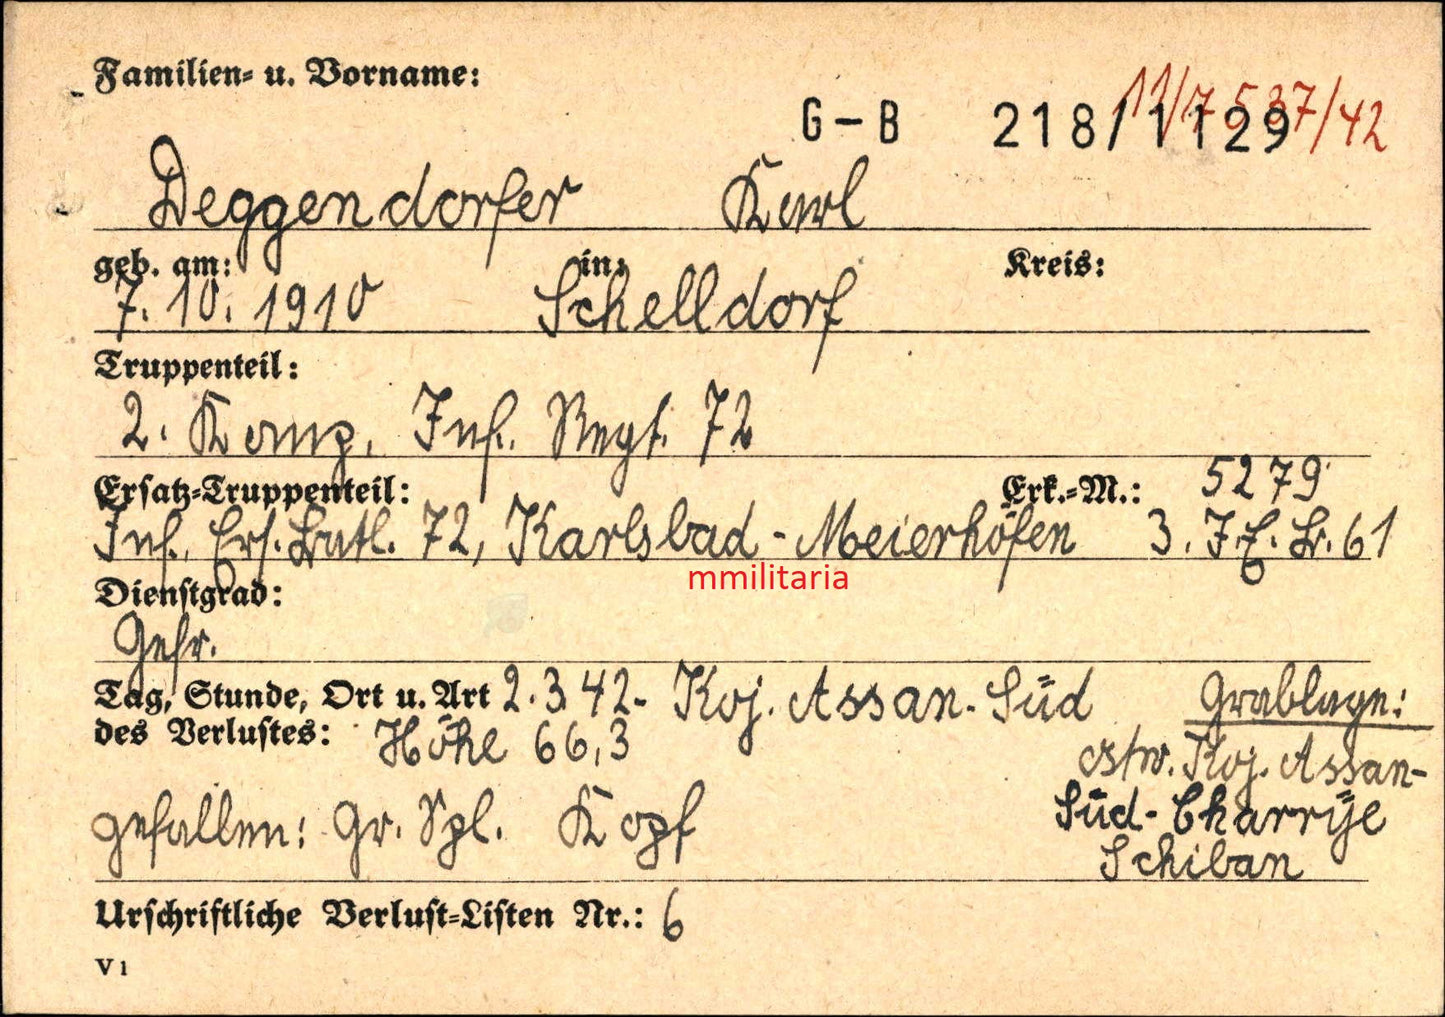 Familien- u. Vorname:
G-B 218/1129
11/7537/42
Deggendorfer Karl
geb. am: in: Kreis:
7. 10. 1910 Schelldorf
Truppenteil:
2. Komp. Inf. Regt. 72
Ersatz-Truppenteil: Erk.-M.: 5279
Inf. Ers. Batl. 72, Karlsbad - Meierhöfen 3. I.E.B. 61
mmilitaria
Dienstgrad:
Gefr.
Tag, Stunde, Ort u. Art 2.3.42- Koj. Assan-Süd Grablage:
des Verlustes: Höhe 66,3 ostw. Koj. Assan-
gefallen: Gr. Spl. Kopf Süd-Charrije
Schiban
Urschriftliche Verlust-Listen Nr.: 6
V 1